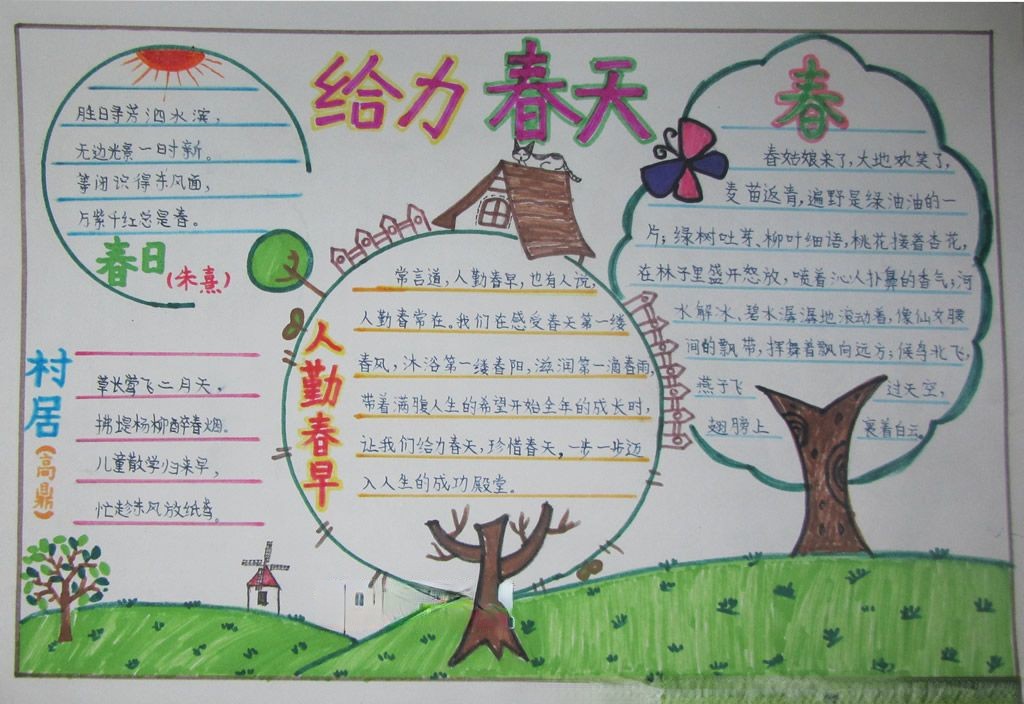 给力春天
胜日寻芳泗水滨，
无边光景一日时新。
等闲识得东风面，
万紫千红总是春。
春日(朱熹)
村居(高鼎)
草长莺飞二月天。
拂堤杨柳醉春烟。
儿童散学归来早，
忙趁东风放纸鸢。
人勤春早
常言道，人勤春早，也有人说，
人勤春常在。我们在感受春天第一缕
春风，沐浴第一缕春阳，滋润第一滴春雨，
带着满腹人生的希望开始全年的成长时，
让我们给力春天，珍惜春天，一步一步迈
入人生的成功殿堂。
春
春姑娘来了，大地欢笑了，
麦苗返青，遍野是绿油油的一
片；绿树吐芽，柳叶细语，桃花接着杏花，
在林子里盛开怒放，喷着沁人扑鼻的香气；河
水解冰，碧水潺潺地滚动着，像仙女腰
间的飘带，挥舞着飘向远方；候鸟北飞，
燕子飞过天空，
翅膀上裹着白云。